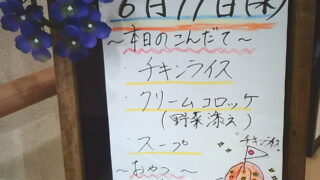 6月17日(木)
～本日のこんだて～
・チキンライス
・クリームコロッケ
(野菜添え)
・スープ
～おやつ～
チキンライス